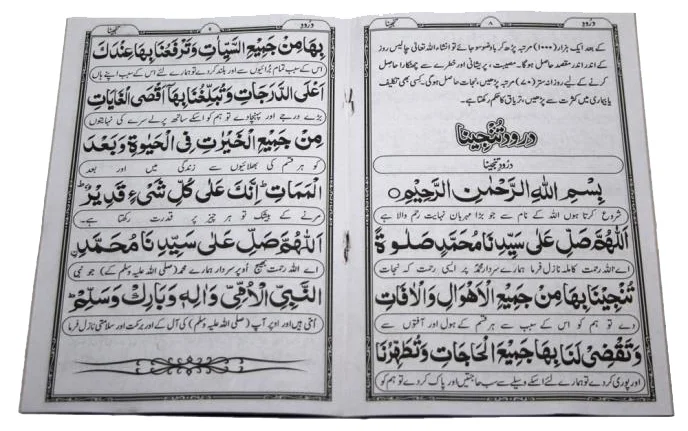 درود
۸
تنجینا
کے بعد ایک ہزار (۱۰۰۰) مرتبہ پڑھ کر باوضو سو جائے تو انشاء اللہ تعالیٰ چالیس روز
کے اندر اندر مقصد حاصل ہوگا۔ مصیبت، پریشانی اور خطرے سے چھٹکارا حاصل
کرنے کے لیے روزانہ ستر (۷۰) مرتبہ پڑھیں، نجات حاصل ہوگی۔ کسی بھی تکلیف
یا بیماری میں کثرت سے پڑھیں، تریاق کا حکم رکھتا ہے۔
درود تنجینا
درودِ تنجینا
بِسْمِ اللهِ الرَّحْمٰنِ الرَّحِيْمِ
شروع کرتا ہوں اللہ کے نام سے جو بڑا مہربان نہایت رحم والا ہے
اَللّٰهُمَّ صَلِّ عَلٰى سَيِّدِنَا مُحَمَّدٍ صَلٰوةً
اے اللہ رحمت کاملہ نازل فرما ہمارے سردار محمدؐ پر ایسی رحمت کہ نجات
تُنْجِيْنَا بِهَا مِنْ جَمِيْعِ الْاَهْوَالِ وَالْاٰفَاتِ
دے تو ہم کو اس کے سبب سے ہر قسم کے ہول اور آفتوں سے
وَتَقْضِىْ لَنَا بِهَا جَمِيْعَ الْحَاجَاتِ وَتُطَهِّرُنَا
اور پوری کر دے تو ہمارے لئے اسکے وسیلے سے سب حاجتیں اور پاک کر دے تو ہم کو
درود
۹
تنجینا
بِهَا مِنْ جَمِيْعِ السَّيِّاٰتِ وَتَرْفَعُنَا بِهَا عِنْدَكَ
اس کے سبب تمام برائیوں سے اور بلند کر دے تو ہمارے لئے اس کے سبب اپنے ہاں
اَعْلَى الدَّرَجَاتِ وَتُبَلِّغُنَا بِهَا اَقْصَى الْغَايَاتِ
بڑے درجے اور پہنچاوے تو ہم کو اسکے ساتھ پرلے سرے کی نہایتوں
مِنْ جَمِيْعِ الْخَيْرَاتِ فِى الْحَيٰوةِ وَبَعْدَ
کو ہر قسم کی بھلائیوں سے زندگی میں اور بعد
الْمَمَاتِ اِنَّكَ عَلٰى كُلِّ شَىْءٍ قَدِيْرٌ
مرنے کے بیشک تو ہر چیز پر قدرت رکھتا ہے۔
اَللّٰهُمَّ صَلِّ عَلٰى سَيِّدِنَا مُحَمَّدِ
اے اللہ رحمت بھیج اوپر سردار ہمارے محمد (صلی اللہ علیہ وسلم کے) جو نبی
النَّبِىِّ الْاُمِّىِّ وَاٰلِهٖ وَبَارِكْ وَسَلِّمْ
اُمّی ہیں اور اوپر آپ (صلی اللہ علیہ وسلم) کی آل کے اور برکت اور سلامتی نازل فرما